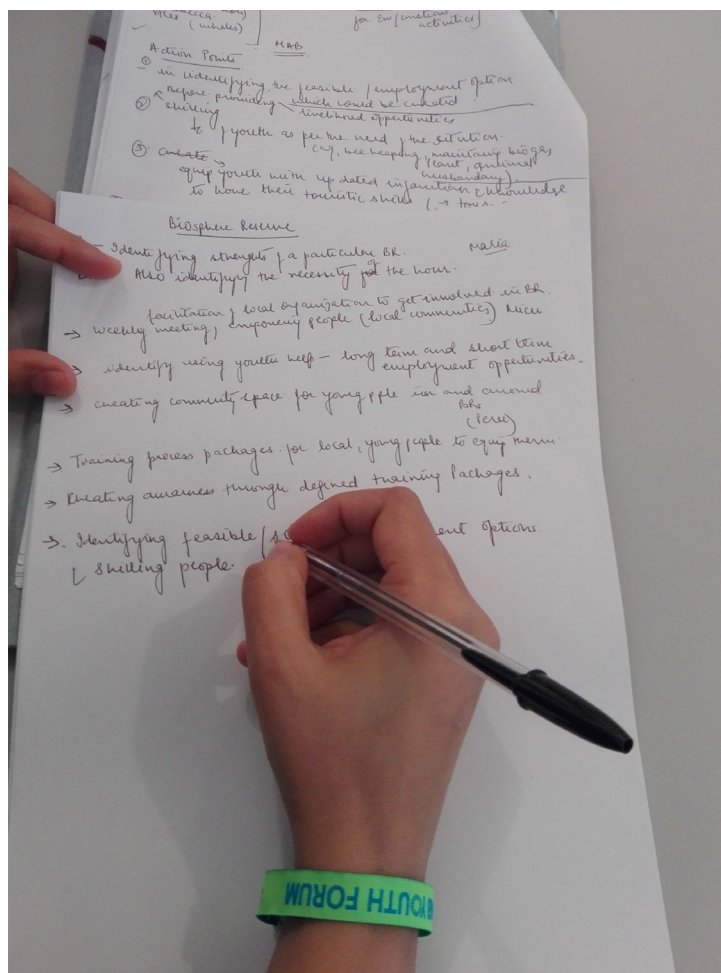 Alex (
for EW/
activities)
MAB
Action Points
① in identifying the feasible / employment option
Before providing which could be created
② skilling livelihood oppertunities
↳ youth as per the need , the
(eg, bee keeping, maintaing biogas
③ create
equip youth with up dated & knowledge
to hone their touristic skills (→
Biosphere Reserve
– Identifying strenghts of a particular BR. Maria
Also identifying the necessity of the hour.
facilitation of local organization to get involved in BR.
→ weekly meeting, people (local communities)
→ identify using youth help – long term and short term
employment oppertunities.
→ creating community space for young pple in and around
BRs
(Peru)
→ Training process packages for local, young people to equip them.
→ Creating awarness through defined training Packages.
→. Identifying feasible / options.
↳ skilling people.
YOUTH FORUM